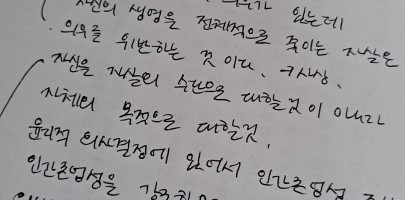 자신의 생명을 전체적으로 죽이는 자살은
의무를 위반하는 것이다.
자신을 자살의 수단으로 대할것이 아니라
자체의 목적으로 대할것.
윤리적 의사결정에 있어서 인간존엄성
인간존엄성을